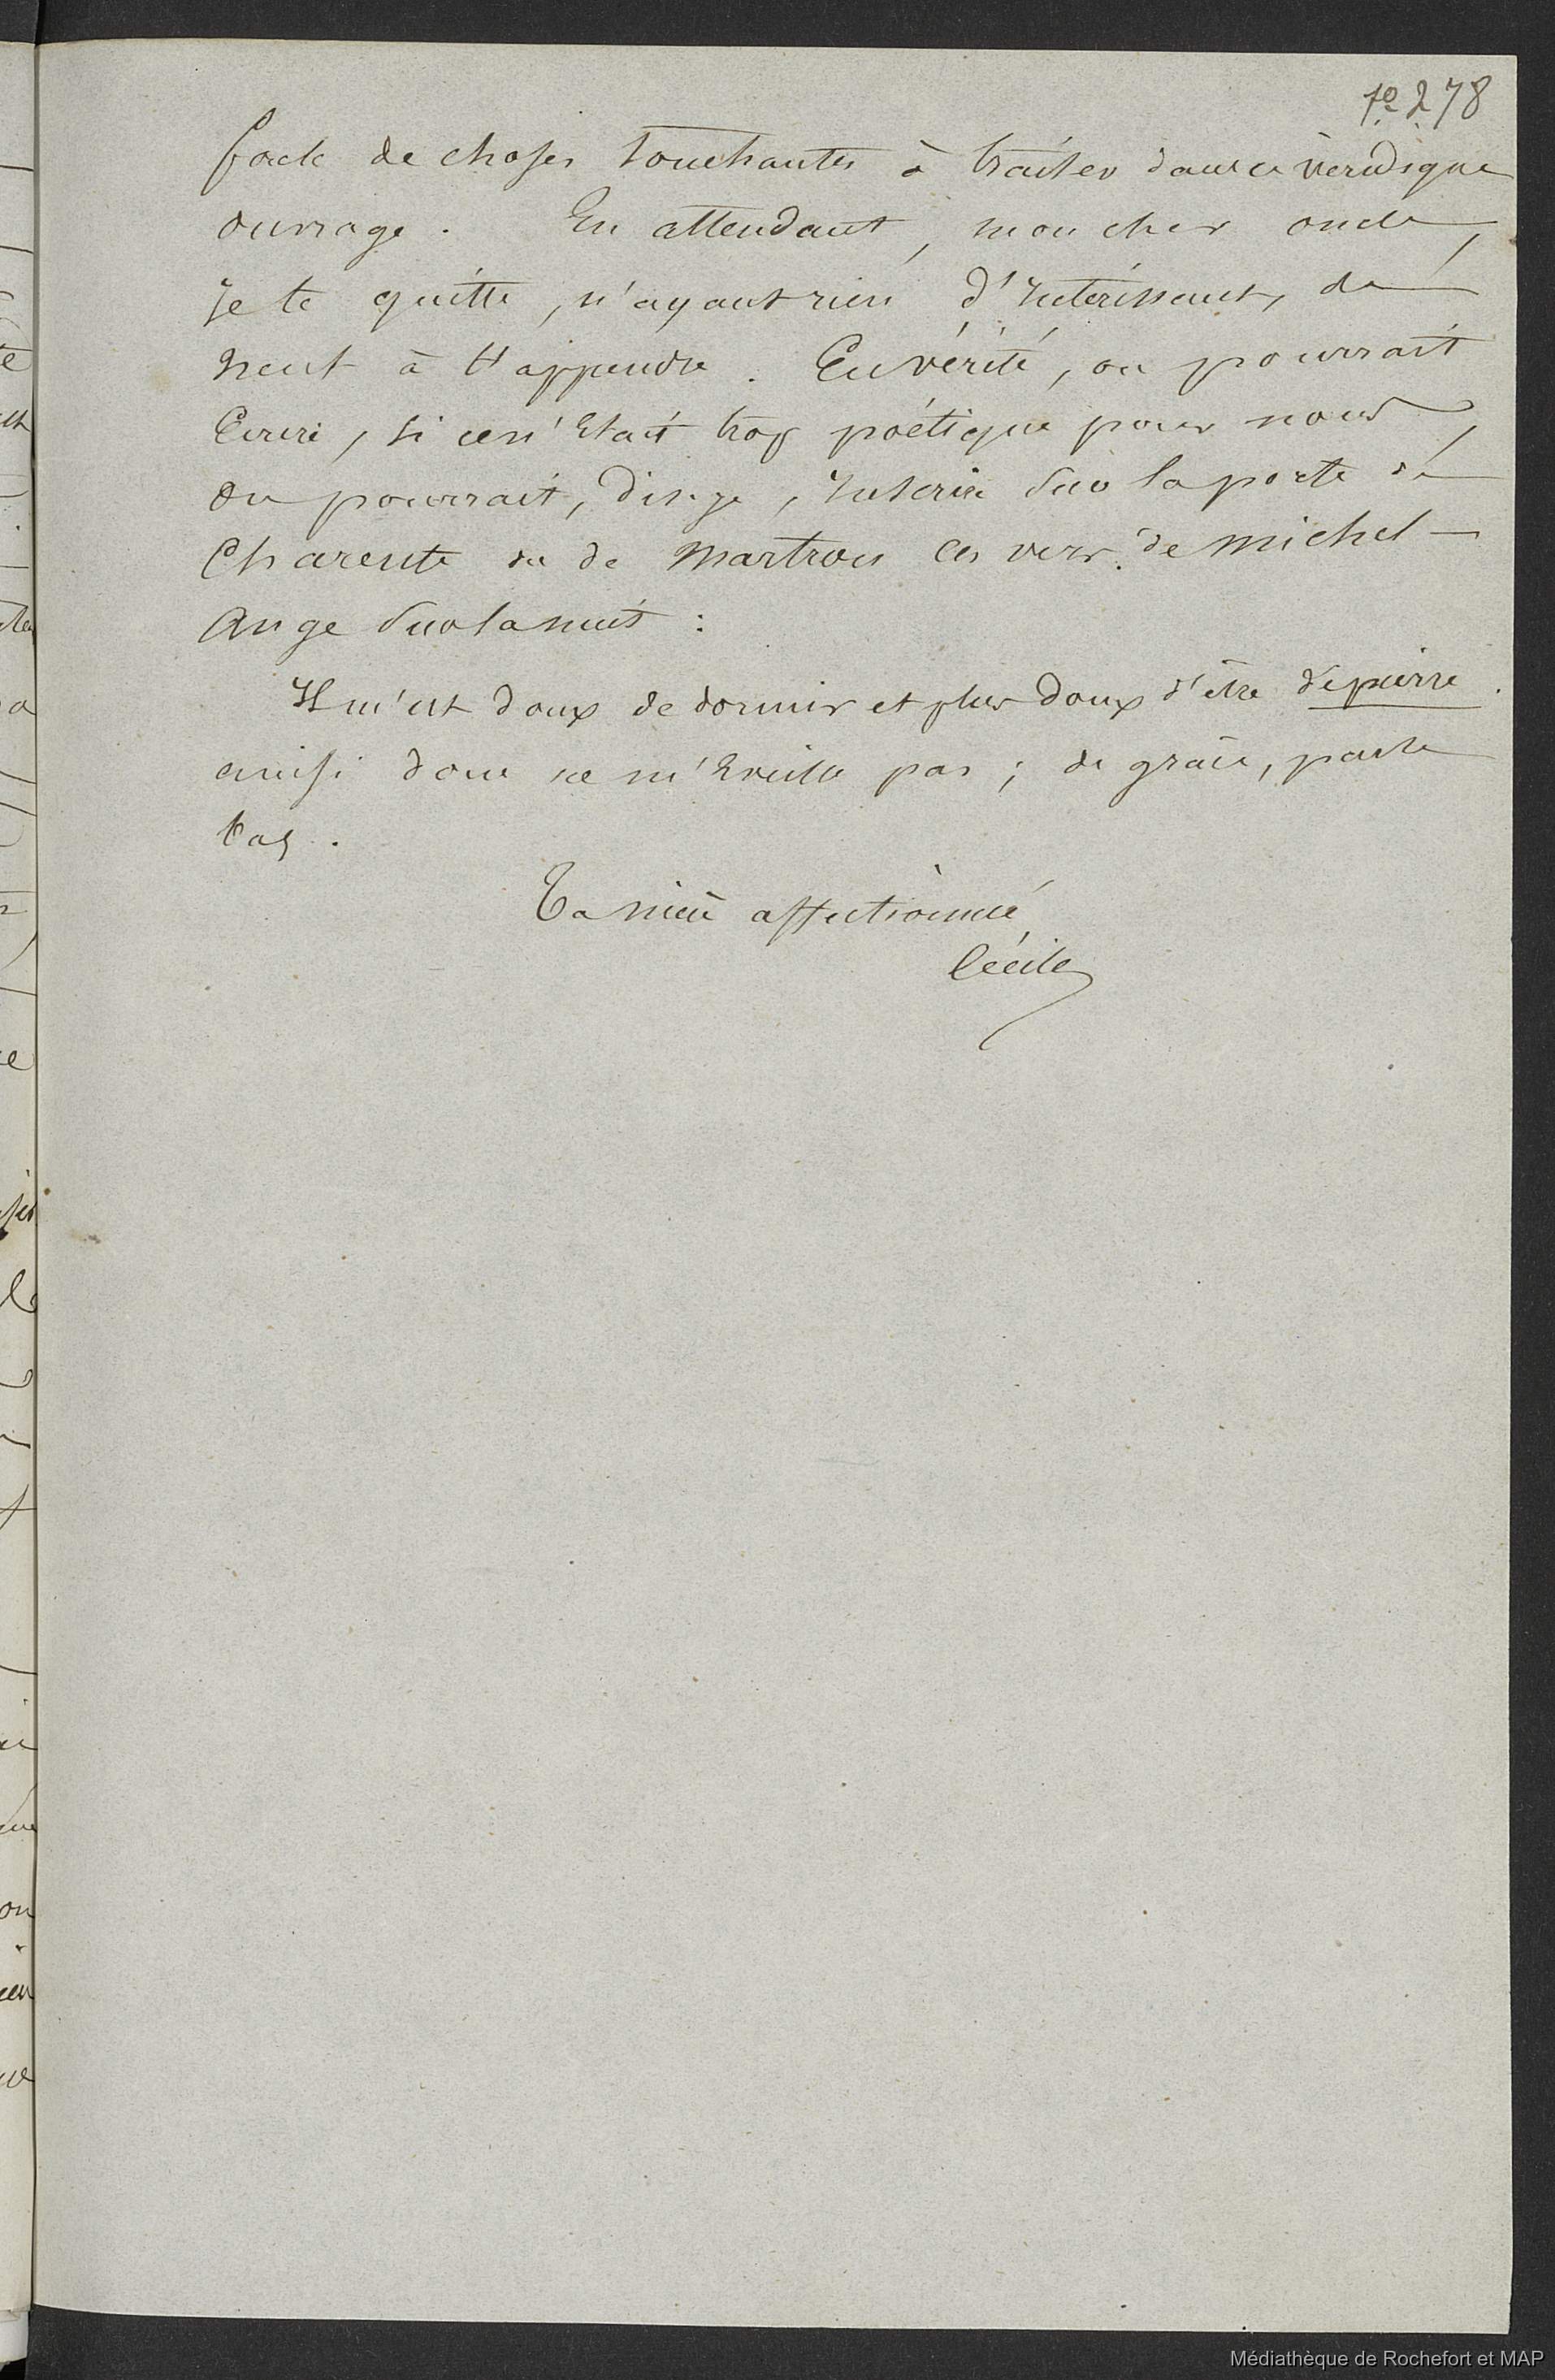 fo 278
foule de choses touchantes à traiter dans ce véridique
ouvrage. En attendant, mon cher oncle,
je te quitte, n'ayant rien d'intéressant, de
neuf à t'apprendre. En vérité, on pourrait
écrire, si ce n'était trop poétique pour nous,
on pourrait, dis-je, inscrire sur la porte de
Charente ou de Martrou ces vers de Michel-
Ange sur la nuit :
Il m'est doux de dormir et plus doux d'être de pierre.
ainsi donc ne m'éveille pas ; de grâce, parle
bas.
Ta nièce affectionnée
Cécile
Médiathèque de Rochefort et MAP